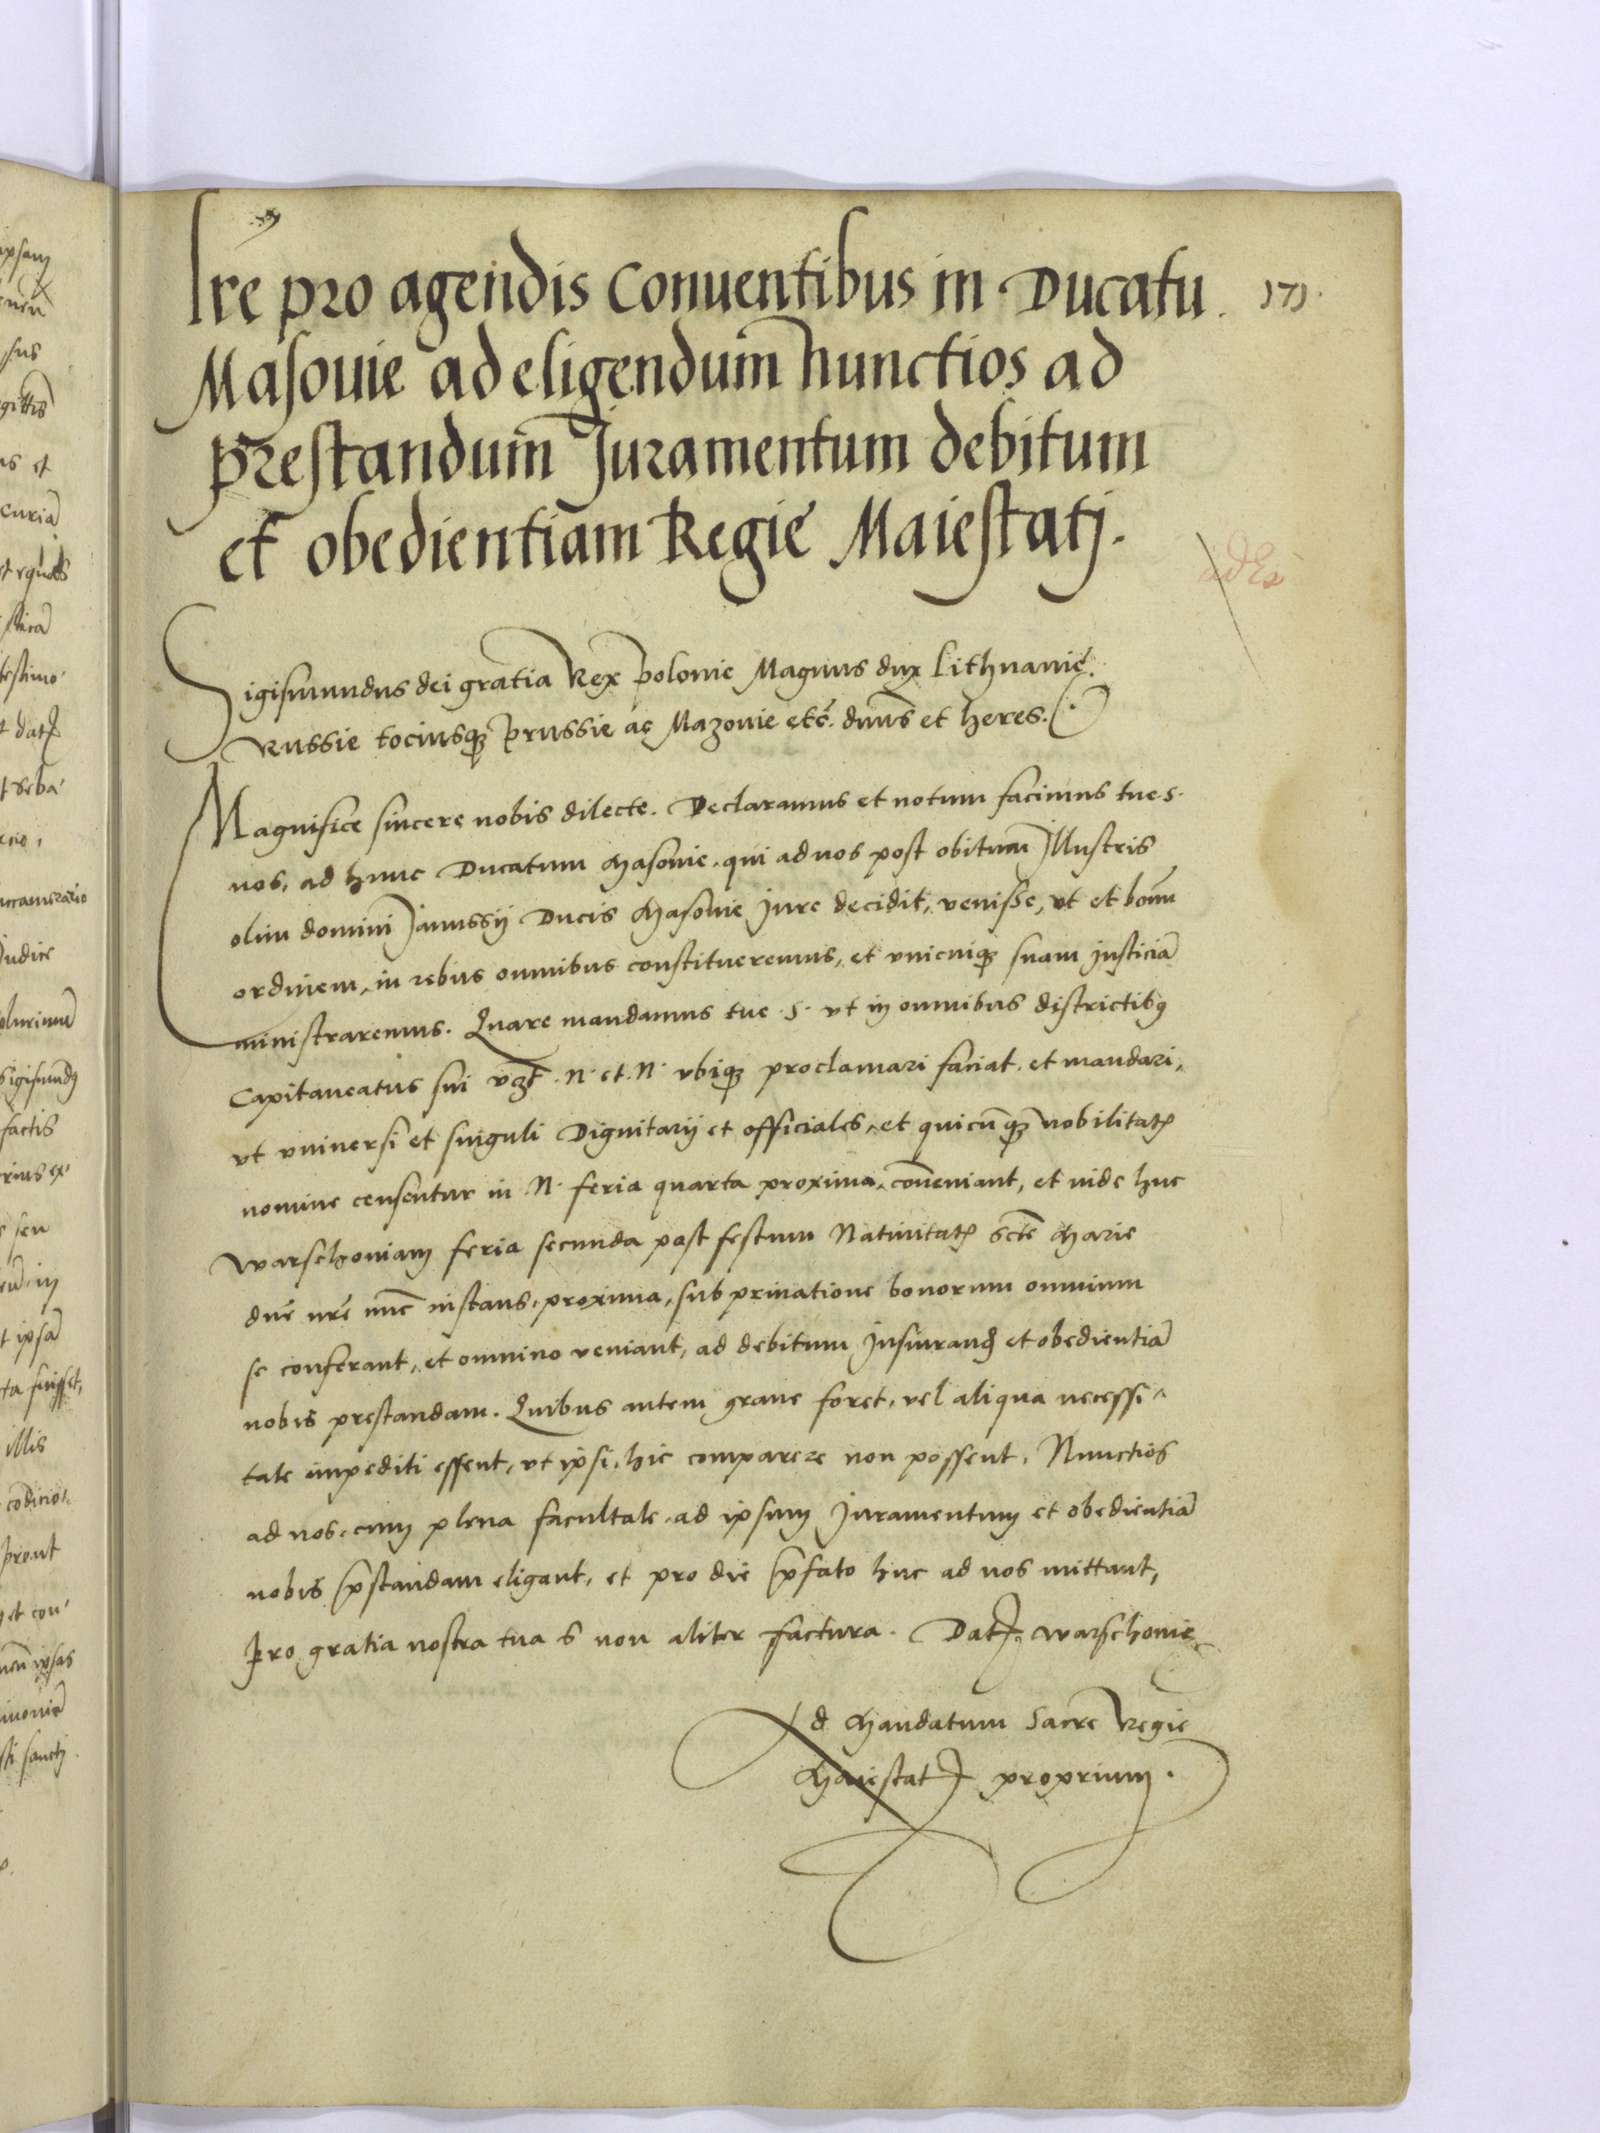 lrē pro agendis Conuentibus in Ducatu
171
Masouie ad eligendum nunctios ad
prestandum Juramentum debitum
et obedientiam Regie Maiestatj.
Sigismundus dei gratia Rex polonie Magnus dux Lithuanie.
Russie tociusqz prussie ac Mazouie etc̄. dnūs et heres.
Magnifice sincere nobis dilecte. Declaramus et notum facimus tue s.
nos, ad hunc Ducatum Masouie, qui ad nos post obitum Illustris
olim domini Janussij Ducis Masouie Jure decidit, venisse, vt et bonū
ordinem, in rebus omnibus constitueremus, et vnicuiqz suam Justiciā
ministraremus. Quare mandamus tue .S. vt in omnibus districtibꝰ
Capitaneatus sui vzt .N. et .N. vbiqz proclamari faciat, et mandari,
vt vniuersi et singuli Dignitarij et officiales, et quicūqz nobilitatꝭ
nomine censentur in N. feria quarta proxima, conueniant, et inde huc
Warschouiam feria secunda post festum Natiuitatꝭ Sctē Marie
dnē nrē nūc instans, proxima, sub priuatione bonorum omnium
se conferant, et omnino veniant, ad debitum Jusiurandꝭ et obedientiā
nobis prestandam. Quibus autem graue foret, vel aliqua necessi-
tate impediti essent, vt ipsi, hic comparere non possent, Nunctios
ad nos, cum plena facultate, ad ipsum Juramentum et obedientiā
nobis p̄standam eligant, et pro die p̄fato huc ad nos mittant,
Pro gratia nostra tua S non aliter factura. Datꝭ Warschouie
Ad Mandatum Sacre Regie
Maiestatꝭ proprium.